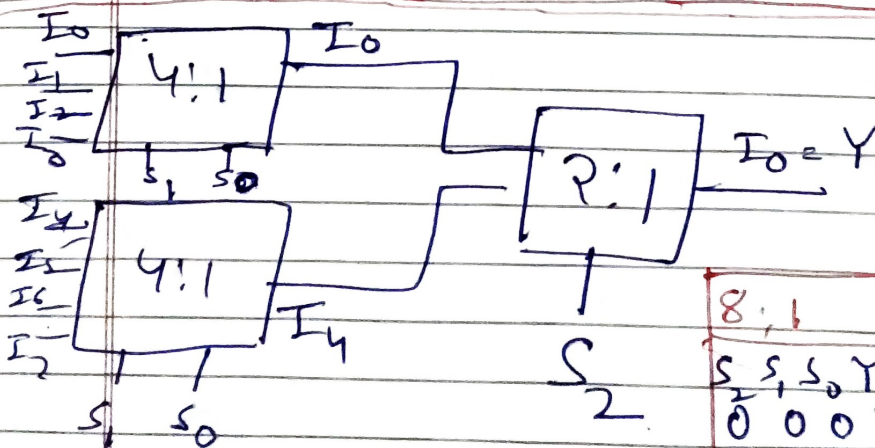 I0
I1
I2
I0
4:1
S1 S0
I0
I4
I5
I6
I7
4:1
S1 S0
I4
2:1
S2
I0 = Y
8:1
S2 S1 S0 Y
0 0 0